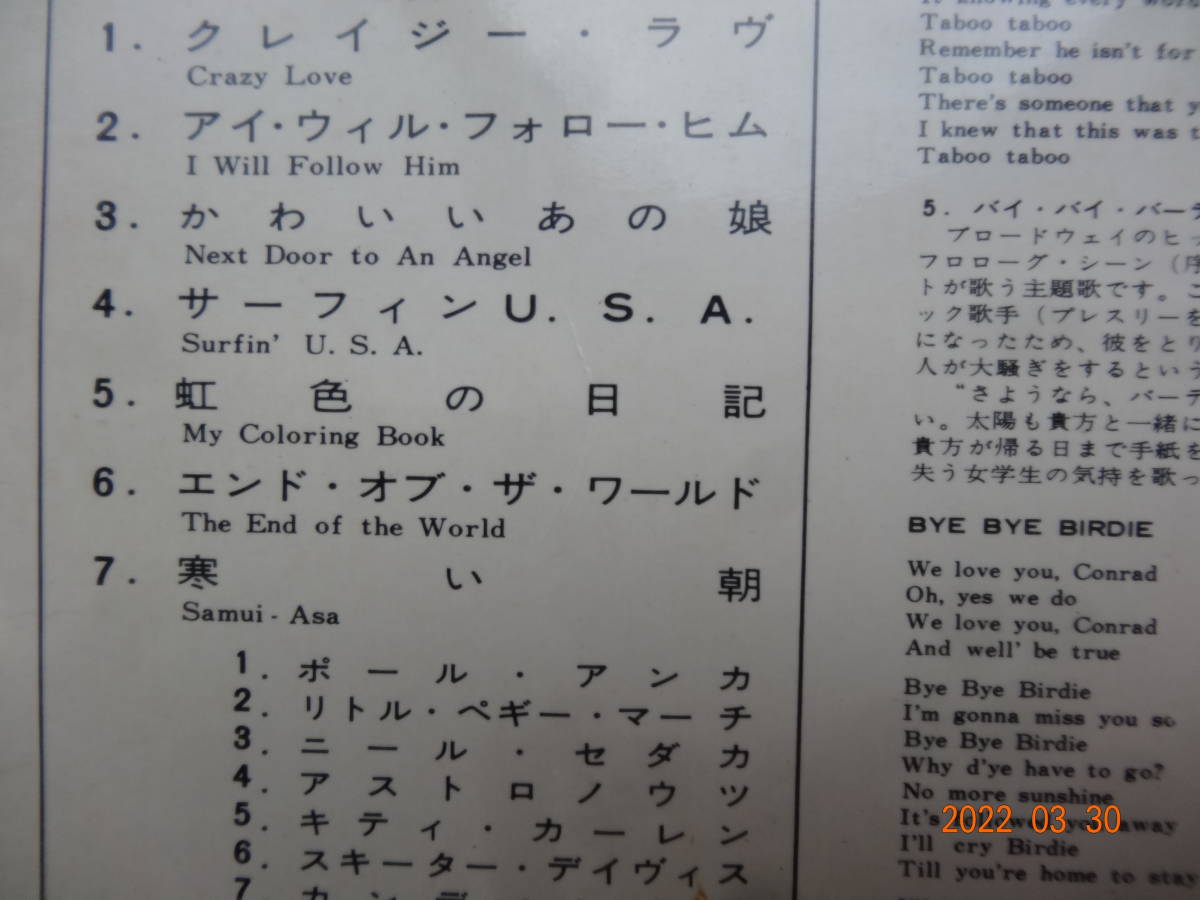 1. クレイジー・ラヴ
Crazy Love
2. アイ・ウィル・フォロー・ヒム
I Will Follow Him
3. かわいいあの娘
Next Door to An Angel
4. サーフィンU. S. A.
Surfin' U. S. A.
5. 虹色の日記
My Coloring Book
6. エンド・オブ・ザ・ワールド
The End of the World
7. 寒い朝
Samui - Asa
1. ポール・アンカ
2. リトル・ペギー・マーチ
3. ニール・セダカ
4. アストロノウツ
5. キティ・カーレン
6. スキーター・デイヴィス
7
knowing every
Taboo taboo
Remember he isn't for
Taboo taboo
There's someone that
I knew that this was
Taboo taboo
5. バイ・バイ・バーデ
ブロードウェイのヒッ
フロローグ・シーン（序
トが歌う主題歌です。こ
ック歌手（プレスリーを
になったため、彼をとり
人が大騒ぎをするという
“さようなら、バーデ
い。太陽も貴方と一緒に
貴方が帰る日まで手紙を
失う女学生の気持を歌っ
BYE BYE BIRDIE
We love you, Conrad
Oh, yes we do
We love you, Conrad
And well' be true
Bye Bye Birdie
I'm gonna miss you so
Bye Bye Birdie
Why d'ye have to go?
No more sunshine
It's away
I'll cry Birdie
Till you're home to stay
2022 03 30